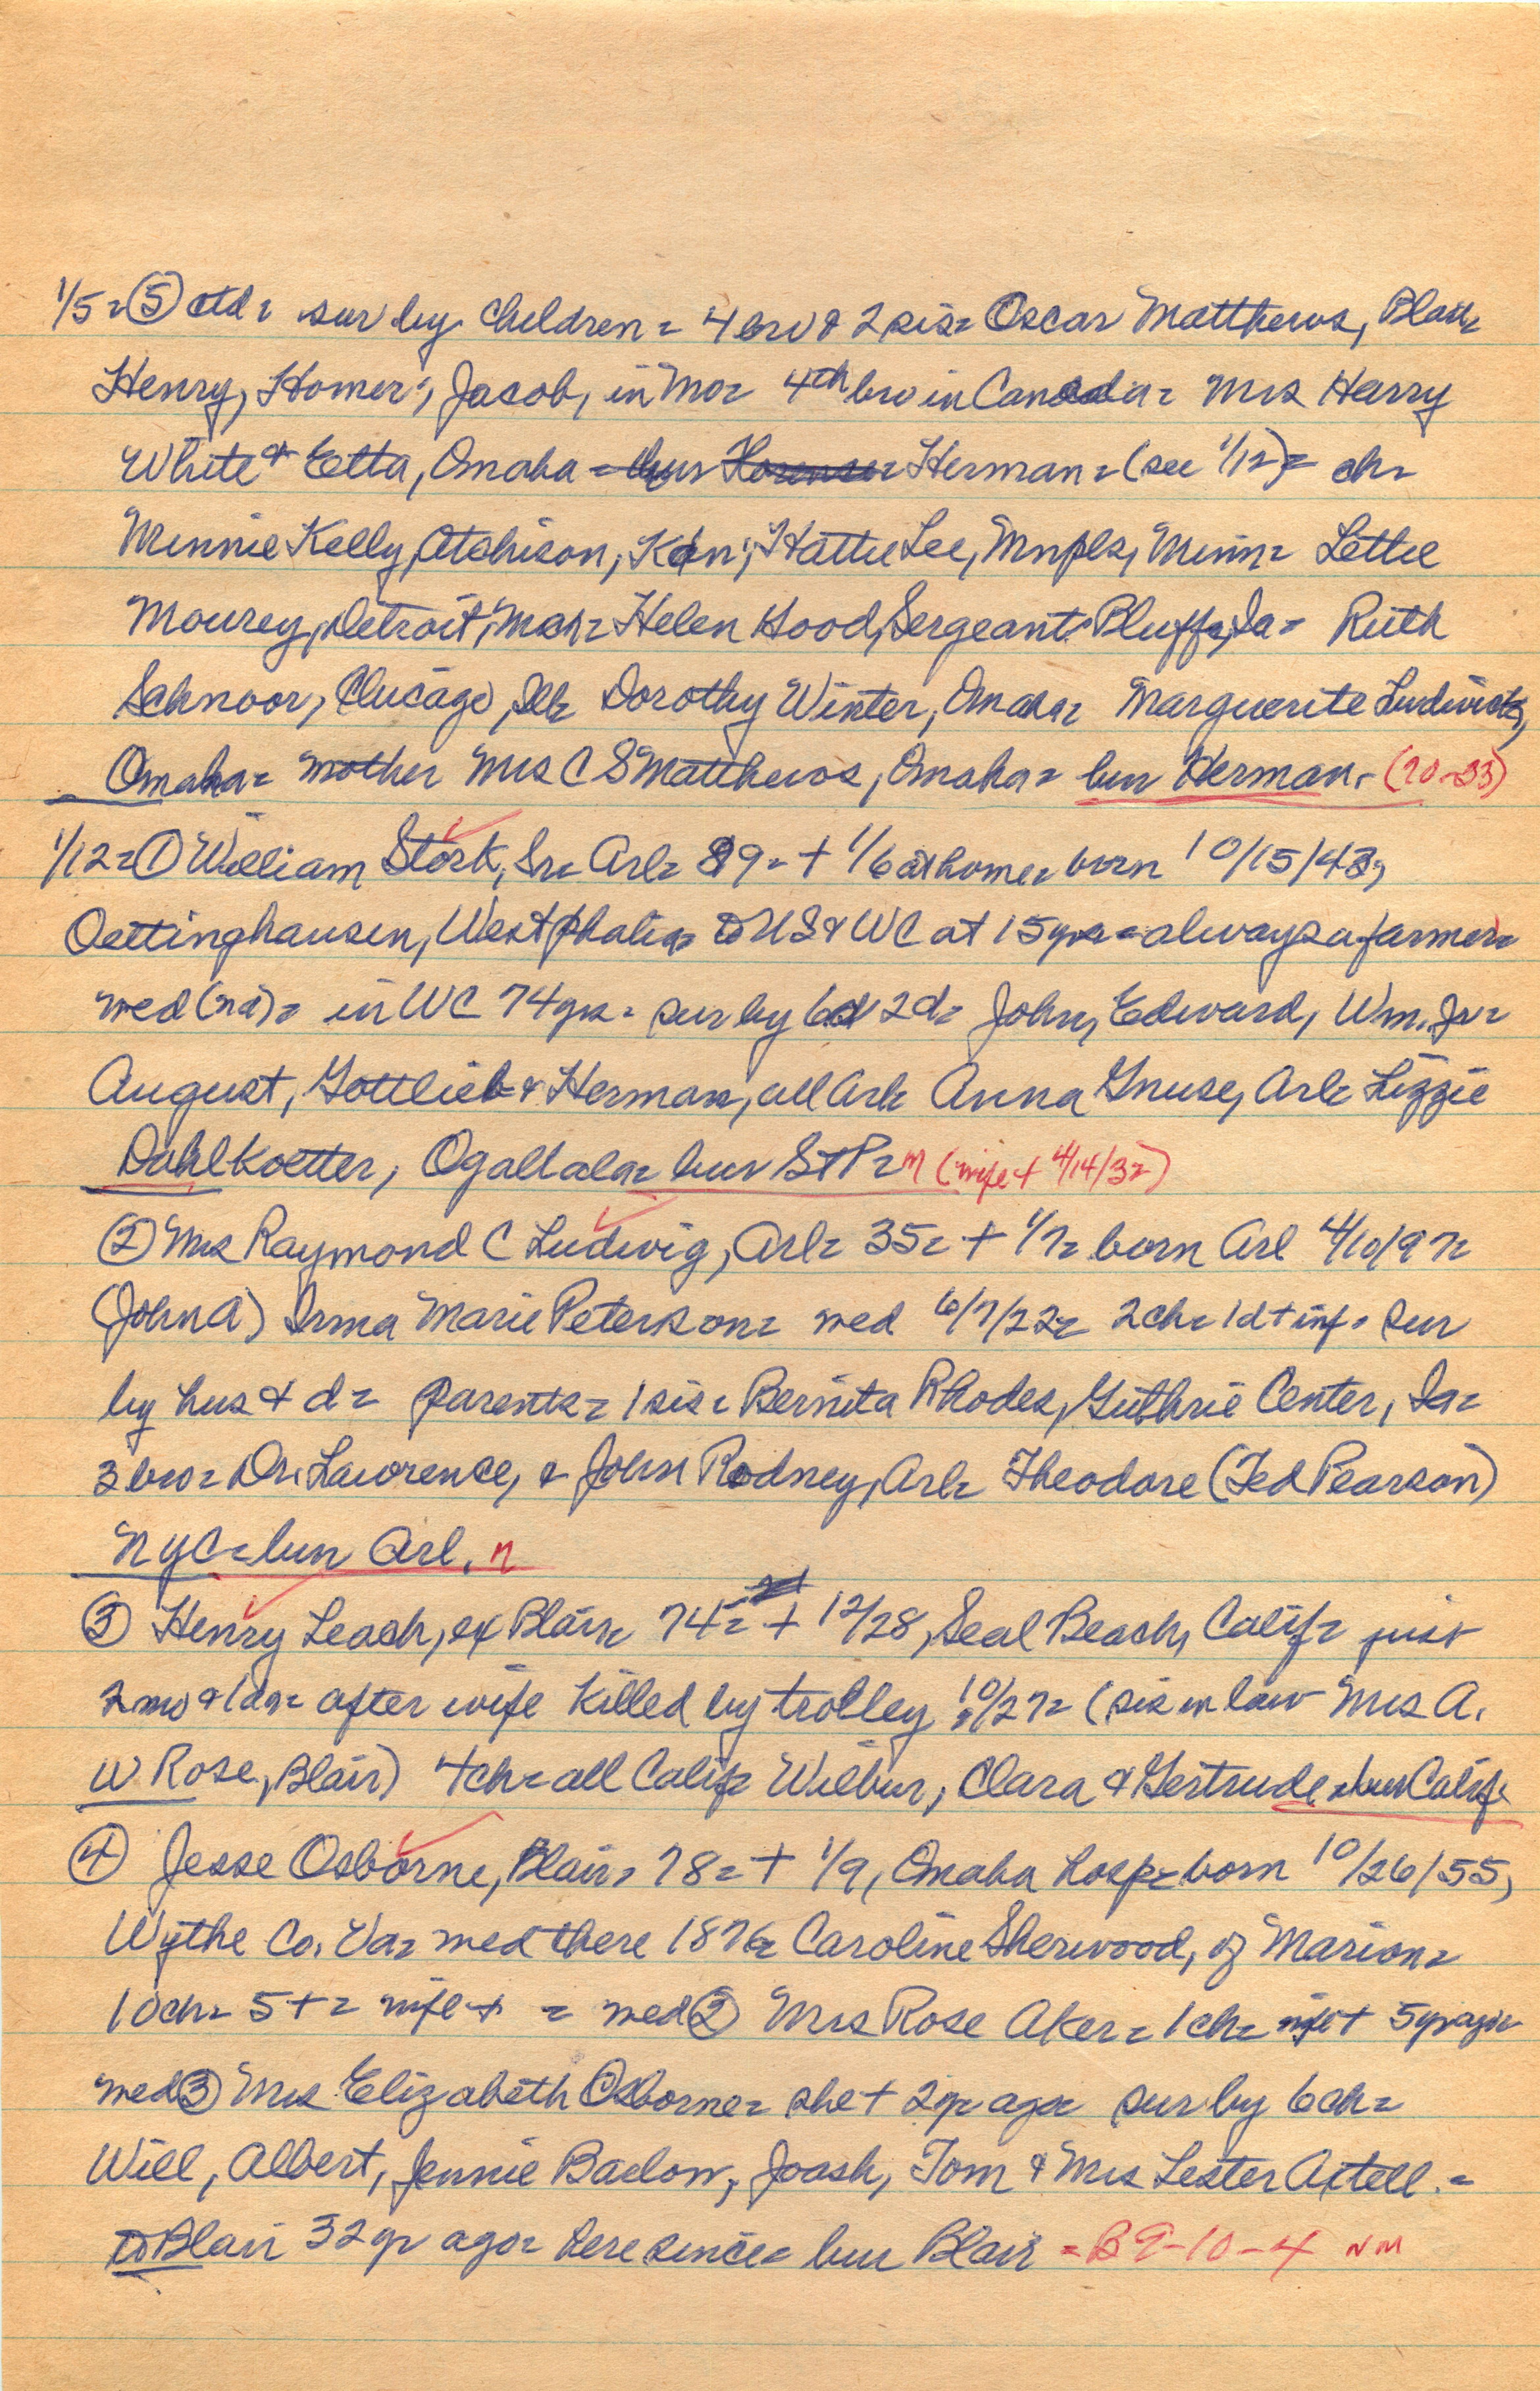 1/5 = ⑤ ctd = sur by children = 4 bro & 2 sis = Oscar Matthews, Blair =
Henry, Homer, Jacob, in Mo = 4th bro in Canada = Mrs Harry
White & Etta, Omaha = bur Herman = (see 1/12) = ch =
Minnie Kelly, Atchison, Kan; Hattie Lee, Mnpls, Minn = Lettie
Mourey, Detroit, Mch = Helen Hood, Sergeant Bluffs, Ia = Ruth
Schnoor, Chicago, Ill = Dorothy Winter, Omaha = Marguerite
Omaha = mother Mrs C S Matthews, Omaha = bur Herman. (20-33)
1/12 = ① William Stork, Sr = Arl = 89 = + 1/6 at home = born 10/15/43,
Oettinghausen, Westphalia = to US & WC at 15 yrs = always a farmer =
wed (nd) = in WC 74 yrs = sur by 6 2d = John, Edward, Wm. Jr =
August, Gottlieb & Herman, all Arl = Anna Gnuse, Arl = Lizzie
Dahlkoetter, Ogallala = bur St P = M (wife + 4/14/32)
② Mrs Raymond C Ludwig, Arl = 35 = + 1/7 = born Arl 4/10/97 =
(John A) Irma Marie Peterson = wed 6/7/22 = 2 ch = 1 d + inf = sur
by hus & d = parents = 1 sis = Bernita Rhodes, Guthrie Center, Ia =
3 bro = Dr. Lawrence, & John Rodney, Arl = Theodore (Ted Pearson)
NYC = bur Arl. n
③ Henry Leach, ex Blair = 74 = + 12/28, Seal Beach, Calif = just
2 mo & 1 da = after wife killed by trolley 10/27 = (sis in law Mrs A.
W Rose, Blair) 4 ch = all Calif = Wilbur, Clara & Gertrude = bur Calif.
④ Jesse Osborne, Blair = 78 = + 1/9, Omaha hosp = born 10/26/55,
Wythe Co. Va = wed there 1876 = Caroline Sherwood, of Marion =
10 ch = 5 + = wife + = wed ② Mrs Rose Aker = 1 ch = wife + 5 yr ago =
wed ③ Mrs Elizabeth Osborne = she + 2 yr ago = sur by 6 ch =
Will, Albert, Jennie Barlow, Joash, Tom & Mrs Lester Axtell. =
to Blair 32 yr ago = here since = bur Blair = B 9-10-4 NM